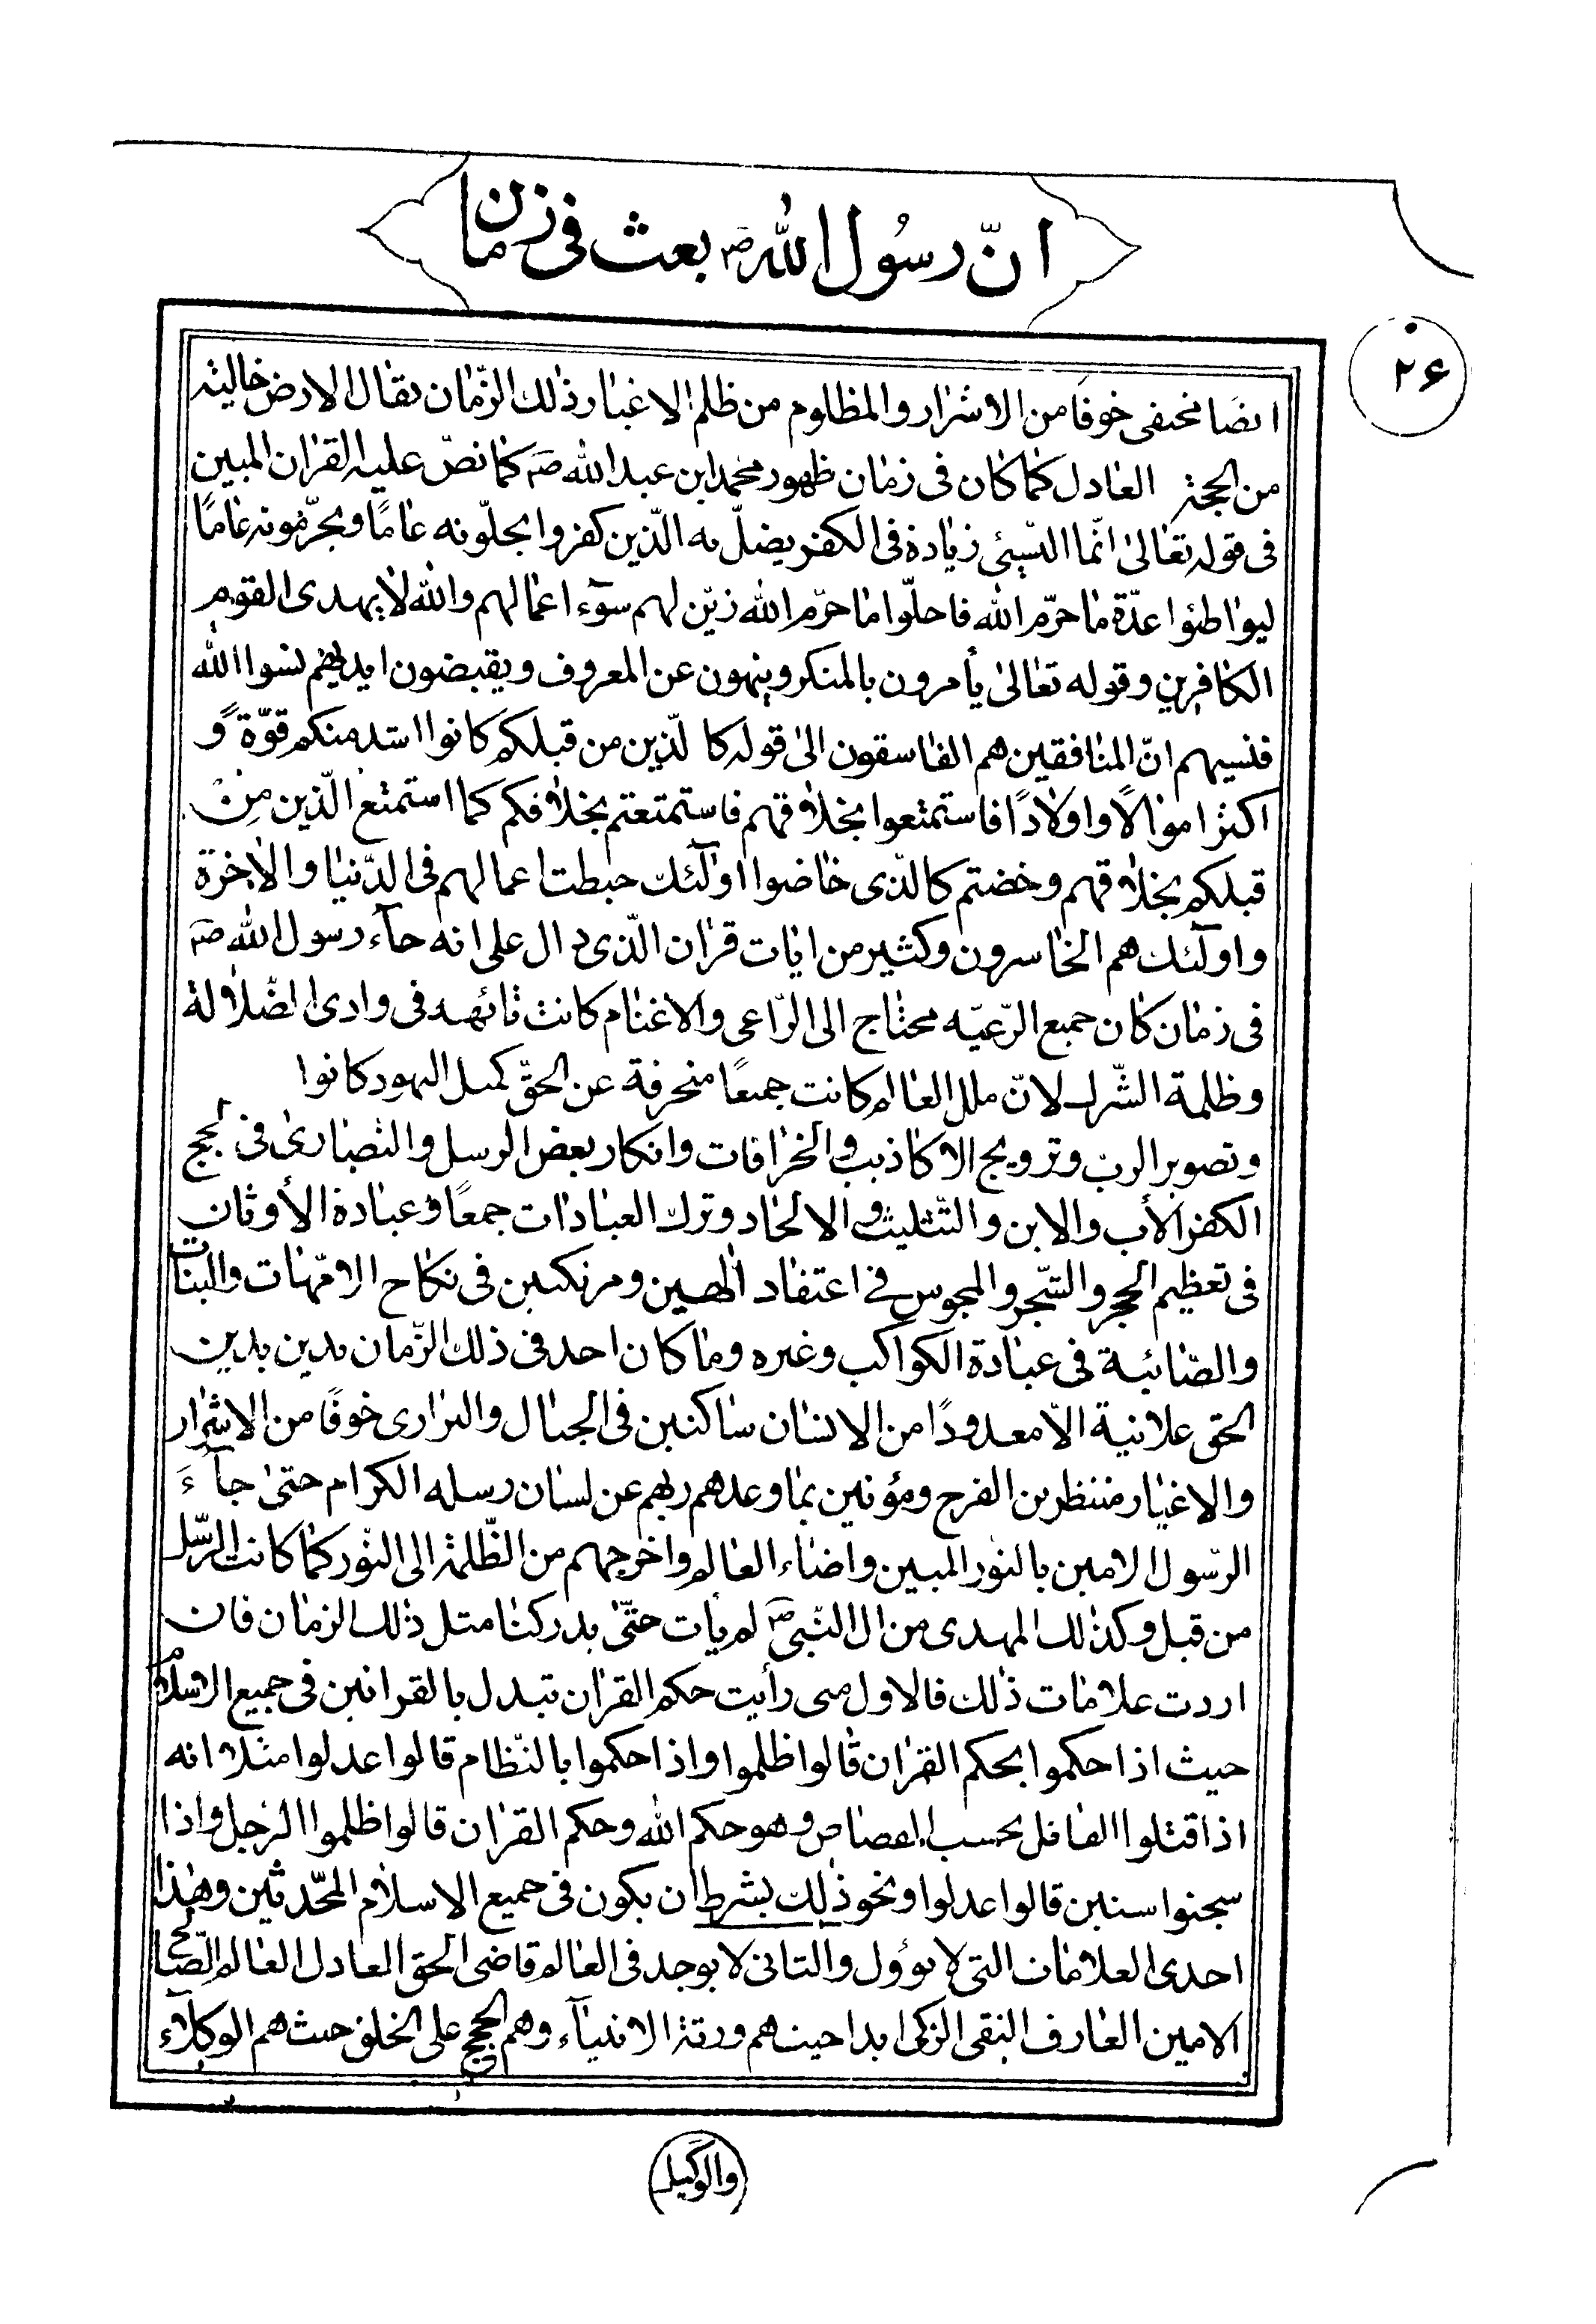 انّ رسُول الله ص بعث فى زمان
۲۶
ايضًا تخفى خوفًا من الاشرار والمظلوم من ظلم الاغيار ذلك الزّمان يقال الارض خالية
من الحجة العادل كما كان فى زمان ظهور محمد ابن عبد الله ص كما نصّ عليه القران المبين
فى قوله تعالى انّما النسيئ زيادة فى الكفر يضلّ به الّذين كفروا يحلّونه عامًا ويحرّمونه عامًا
ليواطئوا عدّة ما حرّم الله فاحلّوا ما حرّم الله زيّن لهم سوٓء اعمالهم والله لا يهدى القوم
الكافرين وقوله تعالى يأمرون بالمنكر وينهون عن المعروف ويقبضون ايديهم نسوا الله
فنسيهم انّ المنافقين هم الفاسقون الى قوله كا لّذين من قبلكم كانوا اشد منكم قوّة و
اكثر اموالًا واولادًا فاستمتعوا بخلاقهم فاستمتعتم بخلاقكم كما استمتع الّذين مِنْ
قبلكم بخلاقهم وخضتم كالذى خاضوا اولٓئك حبطت اعمالهم فى الدّنيا والاخرة
واولٓئك هم الخاسرون وكثير من ايات قران الّذى دال على انه جآء رسول الله ص
فى زمان كان جميع الرّعيّه محتاج الى الرّاعى والاغنام كانت تائهه فى وادى الضّلالة
وظلمة الشّرك لانّ ملل العالم كانت جميعًا منحرفة عن الحقّ كمثل اليهود كانوا
وتصوير الرب وترويج الاكاذيب والخرافات وانكار بعض الرسل والنصارى فى لجج
الكفر الأب والابن والتثليث و الالحاد وترك العبادات جمعًا وعبادة الأوثان
فى تعظيم الحجر والشّجر والمجوس فى اعتقاد الهين ومرتكبين فى نكاح الامّهات والبنات
والصّائبة فى عبادة الكواكب وغيره وما كان احد فى ذلك الزّمان يدين بدين
الحق علانية الّا معدودًا من الانسان ساكنين فى الجبال والبرارى خوفًا من الاشرار
والاغيار منتظرين الفرج ومؤنين بما وعدهم ربهم عن لسان رسله الكرام حتى جآءَ
الرّسول الامين بالنور المبين واضاء العالم واخرجهم من الظّلمة الى النّور كما كانت الرّسل
من قبل وكذلك المهدى من ال النّبى ص لم يأت حتّى يدركنا مثل ذلك الزمان فان
اردت علامات ذلك فالاول متى رأيت حكم القران تبدل بالقوانين فى جميع الاسلام
حيث اذا حكموا بحكم القران قالوا ظلموا واذا حكموا بالنّظام قالوا عدلوا مثلا انه
اذا قتلوا القاتل بحسب القصاص وهو حكم الله وحكم القران قالوا ظلموا الرجل واذا
سجنوا سنين قالوا عدلوا ونحو ذلك بشرط ان يكون فى جميع الاسلام المحّدثين وهذا
احدى العلامات التى لا يؤول والثانى لا يوجد فى العالم قاضى الحق العادل العالم الصّالح
الامين العارف التقى الزكى ابدا حيث هم ورثة الانبيآء وهم الحجج على الخلق حيث هم الوكلآء
والوكيل